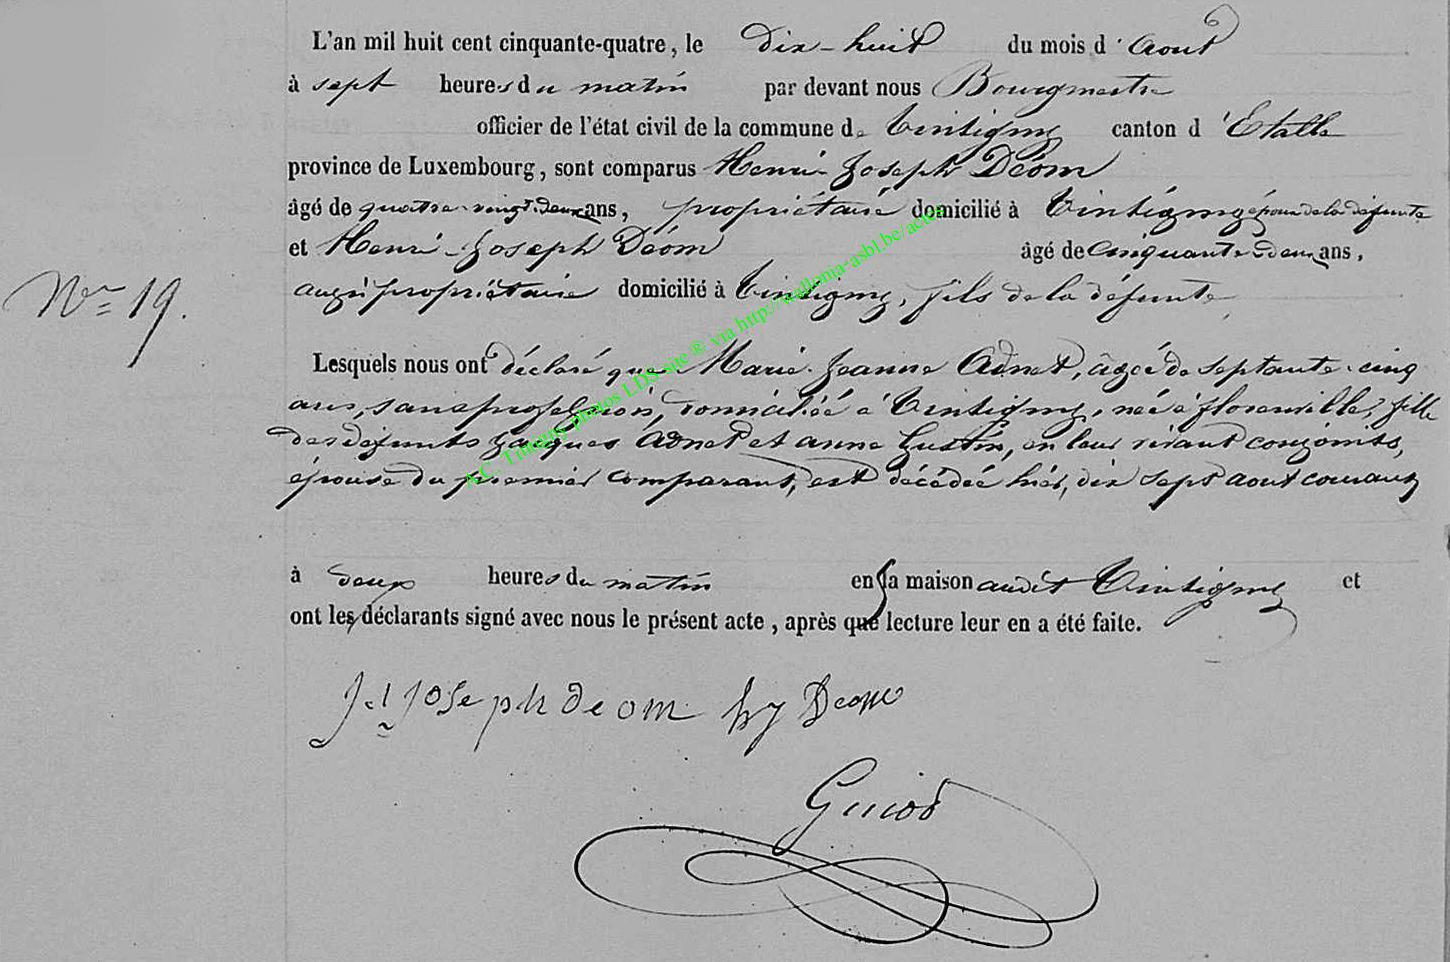 L'an mil huit cent cinquante-quatre, le dix-huit du mois d'Aout
à sept heures du matin par devant nous Bourgmestre
officier de l'état civil de la commune de Tintigny canton d'Etalle
province de Luxembourg, sont comparus Henri-Joseph Déom
âgé de quatre-vingt-deux ans, propriétaire domicilié à Tintigny, époux de la défunte
et Henri-Joseph Déom âgé de cinquante-deux ans,
aussi propriétaire domicilié à Tintigny, fils de la défunte
Nro 19.
Lesquels nous ont déclaré que Marie-Jeanne Adnet, âgée de septante-cinq
ans, sans profession, domiciliée à Tintigny, née à florenville, fille
des défunts Jacques Adnet et anne Gustin, en leur vivant conjoints,
épouse du premier comparant, est décédée hier, dix sept aout courant
à deux heures du matin en sa maison audit Tintigny et
ont les déclarants signé avec nous le présent acte, après que lecture leur en a été faite.
Joseph deom hy Deom
Guiot
A.C. Tintigny photos LDS site ® via http://wallonia-asbl.be/actes